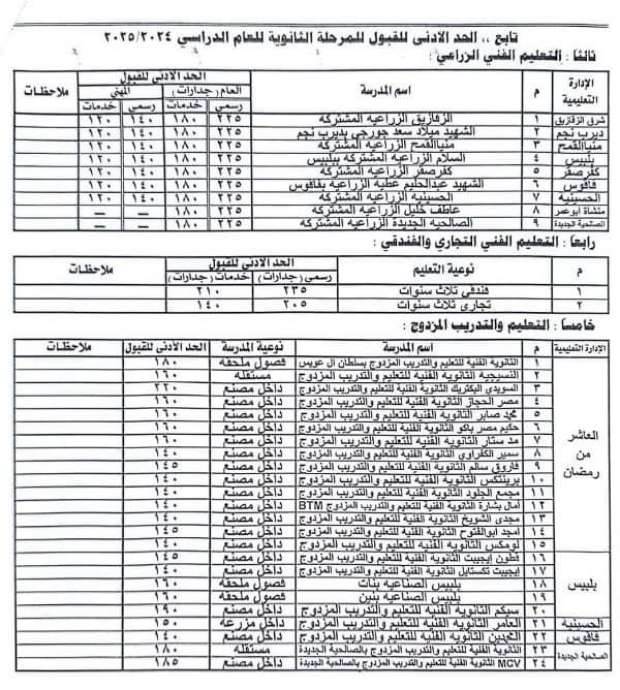 تابع ،، الحد الأدنى للقبول للمرحلة الثانوية للعام الدراسي ٢٠٢٥/٢٠٢٤
ثالثا : التعليم الفني الزراعي :
الإدارة التعليمية م اسم المدرسة الحد الأدنى للقبول ملاحظات
العام (جدارات) المهني
رسمي خدمات رسمي خدمات
شرق الزقازيق ١ الزقازيق الزراعية المشتركة ٢٢٥ ١٨٠ ١٤٠ ١٢٠
ديرب نجم ٢ الشهيد ميلاد سعد جورجي بديرب نجم ٢٢٥ ١٨٠ ١٤٠ ١٢٠
منيا القمح ٣ منيا القمح الزراعية المشتركة ٢٢٥ ١٨٠ ١٤٠ ١٢٠
بلبيس ٤ السلام الزراعية المشتركة ببلبيس ٢٢٥ ١٨٠ ١٤٠ ١٢٠
كفر صقر ٥ كفر صقر الزراعية المشتركة ٢٢٥ ١٨٠ ١٤٠ ١٢٠
فاقوس ٦ الشهيد عبدالحليم عطية الزراعية بفاقوس ٢٢٥ ١٨٠ ١٤٠ ١٢٠
الحسينية ٧ الحسينية الزراعية المشتركة ٢٢٥ ١٨٠ ١٤٠ ١٢٠
منشأة ابو عمر ٨ عاطف خليل الزراعية المشتركة ٢٢٥ ١٨٠ — —
الصالحية الجديدة ٩ الصالحية الجديدة الزراعية المشتركة ٢٢٥ ١٨٠ — —
رابعا : التعليم الفني التجاري والفندقي :
م نوعية التعليم الحد الأدنى للقبول ملاحظات
رسمي (جدارات) خدمات (جدارات)
١ فندقي ثلاث سنوات ٢٣٥ ٢١٠
٢ تجاري ثلاث سنوات ٢٠٥ ١٤٠
خامسا : التعليم والتدريب المزدوج :
الإدارة التعليمية م اسم المدرسة نوعية المدرسة الحد الأدنى للقبول ملاحظات
العاشر من رمضان
١ الثانوية الفنية للتعليم والتدريب المزدوج بسلطان ال عويس فصول ملحقة ١٨٠
٢ النسيجية الثانوية الفنية للتعليم والتدريب المزدوج مستقلة ١٦٠
٣ السويدي اليكتريك الثانوية الفنية للتعليم والتدريب المزدوج داخل مصنع ٢٢٠
٤ مصر الحجاز الثانوية الفنية للتعليم والتدريب المزدوج داخل مصنع ١٦٠
٥ محمد صابر الثانوية الفنية للتعليم والتدريب المزدوج داخل مصنع ١٦٠
٦ حكيم مصر باكو الثانوية الفنية للتعليم والتدريب المزدوج داخل مصنع ١٦٠
٧ مد ستار الثانوية الفنية للتعليم والتدريب المزدوج داخل مصنع ١٦٠
٨ سمير الكفراوي الثانوية الفنية للتعليم والتدريب المزدوج داخل مصنع ١٤٠
٩ فاروق سالم الثانوية الفنية للتعليم والتدريب المزدوج داخل مصنع ١٤٥
١٠ برينتكس الثانوية الفنية للتعليم والتدريب المزدوج داخل مصنع ١٤٠
١١ مجمع الجلود الثانوية الفنية للتعليم والتدريب المزدوج داخل مصنع ١٤٠
١٢ آمال بشارة الثانوية الفنية للتعليم والتدريب المزدوج BTM داخل مصنع ١٤٠
١٣ مجدى الشويخ الثانوية الفنية للتعليم والتدريب المزدوج داخل مصنع ١٤٠
١٤ امجد ابو الفتوح الثانوية الفنية للتعليم والتدريب المزدوج داخل مصنع ١٤٥
١٥ لومكس الثانوية الفنية للتعليم والتدريب المزدوج داخل مصنع ١٤٠
بلبيس
١٦ قطون ايجيبت الثانوية الفنية للتعليم والتدريب المزدوج داخل مصنع ١٤٥
١٧ ايجيبت تكستايل الثانوية الفنية للتعليم والتدريب المزدوج داخل مصنع ١٤٠
١٨ بلبيس الصناعية بنات فصول ملحقة ١٦٠
١٩ بلبيس الصناعية بنين فصول ملحقة ١٦٠
٢٠ سيكم الثانوية الفنية للتعليم والتدريب المزدوج داخل مصنع ١٩٠
الحسينية ٢١ العامر الثانوية الفنية للتعليم والتدريب المزدوج داخل مزرعة ١٥٠
فاقوس ٢٢ الثانوية الفنية للتعليم والتدريب المزدوج داخل مصنع ١٤٠
الصالحية الجديدة ٢٣ الثانوية الفنية للتعليم والتدريب المزدوج بالصالحية الجديدة مستقلة ١٨٠
٢٤ MCV الثانوية الفنية للتعليم والتدريب المزدوج بالصالحية الجديدة داخل مصنع ١٨٥